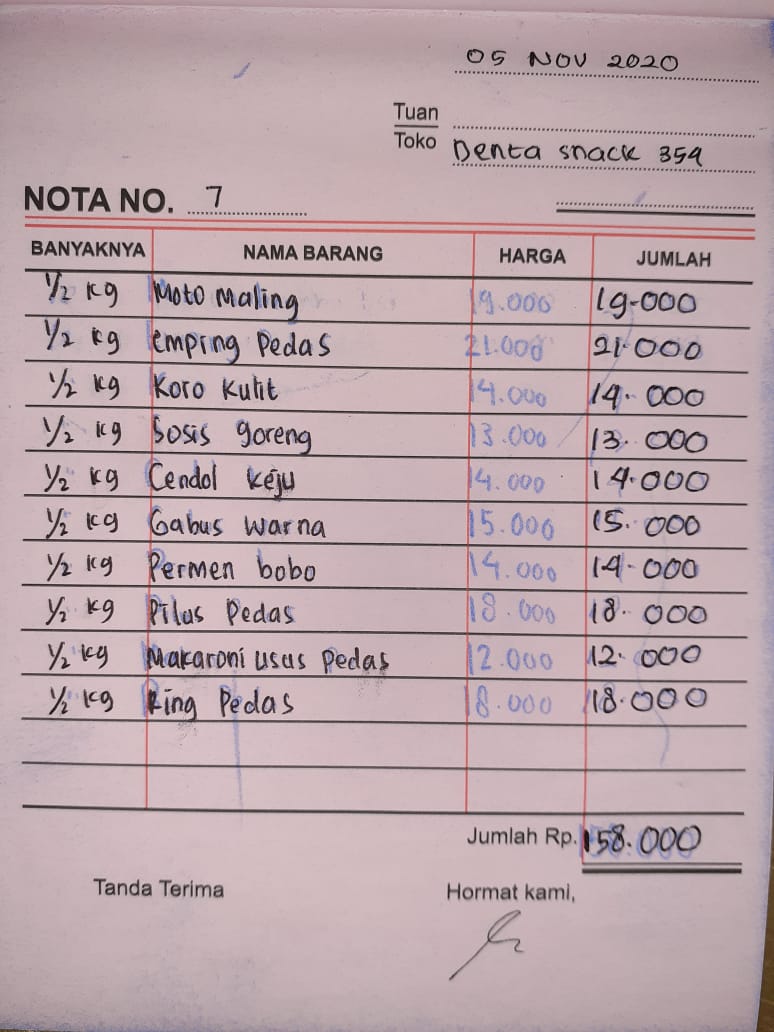 05 NOV 2020
Tuan
Toko Denta snack 354
NOTA NO. 7
BANYAKNYA NAMA BARANG HARGA JUMLAH
1/2 kg Moto Maling 19.000 19-000
1/2 kg emping Pedas 21.000 21.000
1/2 kg Koro Kulit 14.000 14. 000
1/2 kg Sosis goreng 13.000 13. 000
1/2 kg Cendol keju 14.000 14.000
1/2 kg Gabus warna 15.000 15. 000
1/2 kg Permen bobo 14.000 14-000
1/2 kg Pilus Pedas 18.000 18. 000
1/2 kg Makaroni usus Pedas 12.000 12. 000
1/2 kg Ring Pedas 18.000 18.000
Jumlah Rp. 158.000
Tanda Terima Hormat kami,